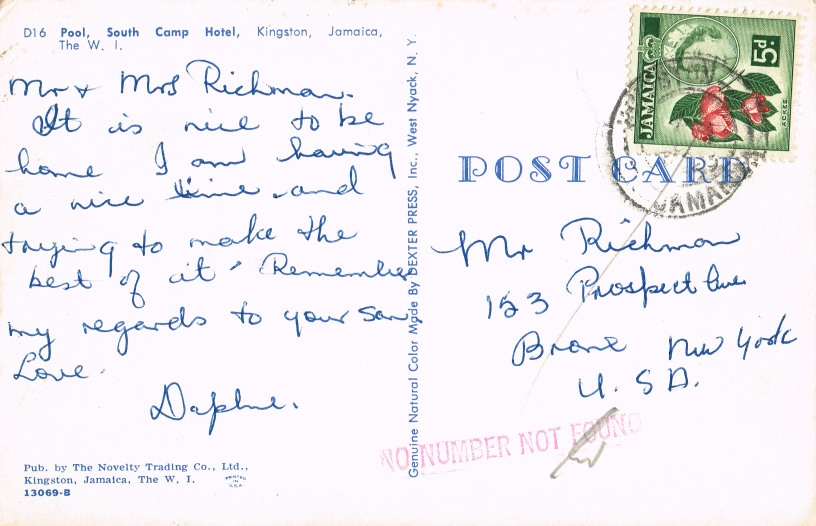 D16 Pool, South Camp Hotel, Kingston, Jamaica,
The W. I.
Mr & Mrs Richman.
It is nice to be
home I am having
a nice time and
trying to make the
best of it, Remember
my regards to your son,
Love.
Daphne.
Pub. by The Novelty Trading Co., Ltd.,
Kingston, Jamaica, The W. I.
13069-B
PRINTED
IN
U.S.A.
Genuine Natural Color Made By DEXTER PRESS, Inc., West Nyack, N. Y.
JAMAICA
5d
ACKEE
JAMAICA
POST CARD
Mr Richman
153 Prospect Ave
Bronx New York
U. S A.
NO NUMBER NOT FOUND